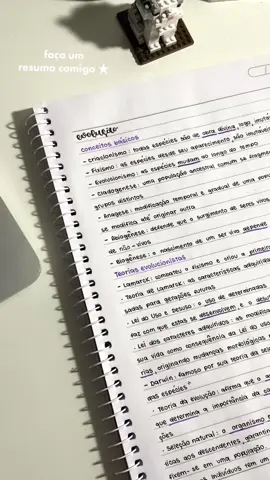 faça um
resumo comigo ★
evolução
conceitos básicos
- criacionismo: todas espécies são de obra divina, logo, imutá
- Fixismo: as espécies desde seu aparecimento são imutáv
- Evolucionismo: as espécies mudam ao longo do tempo
- Cladogênese: uma população ancestral comum se fragmen
grupos distintos
- Anagese: modificação temporal e gradual de uma popu
se modifica até originar outra
- Abiogênese: defende que o surgimento de seres vivos
de não-vivos
- Biogênese: o nascimento de um ser vivo depende
Teorias evolucionistas
- Lamarck: combateu o fixismo e criou a primeira
- Teoria de Lamarck: as características adquiridas
sadas para gerações futuras
· Lei do Uso e Desuso: o uso de determinadas
faz com que estas se desenvolvem e o desu
· Lei dos caracteres adquiridos: as modifica
sua vida como consequência da lei do uso
rias originando mudanças morfológicas n
- Darwin: famoso por sua teoria da seleç
das espécies"
· Teoria da Evolução: afirma que o am
que determina a importância da ca
ções
· Seleção natural: o organismo
ticas aos descendentes, garantin
fixem-se em uma população.
indivíduos têm um